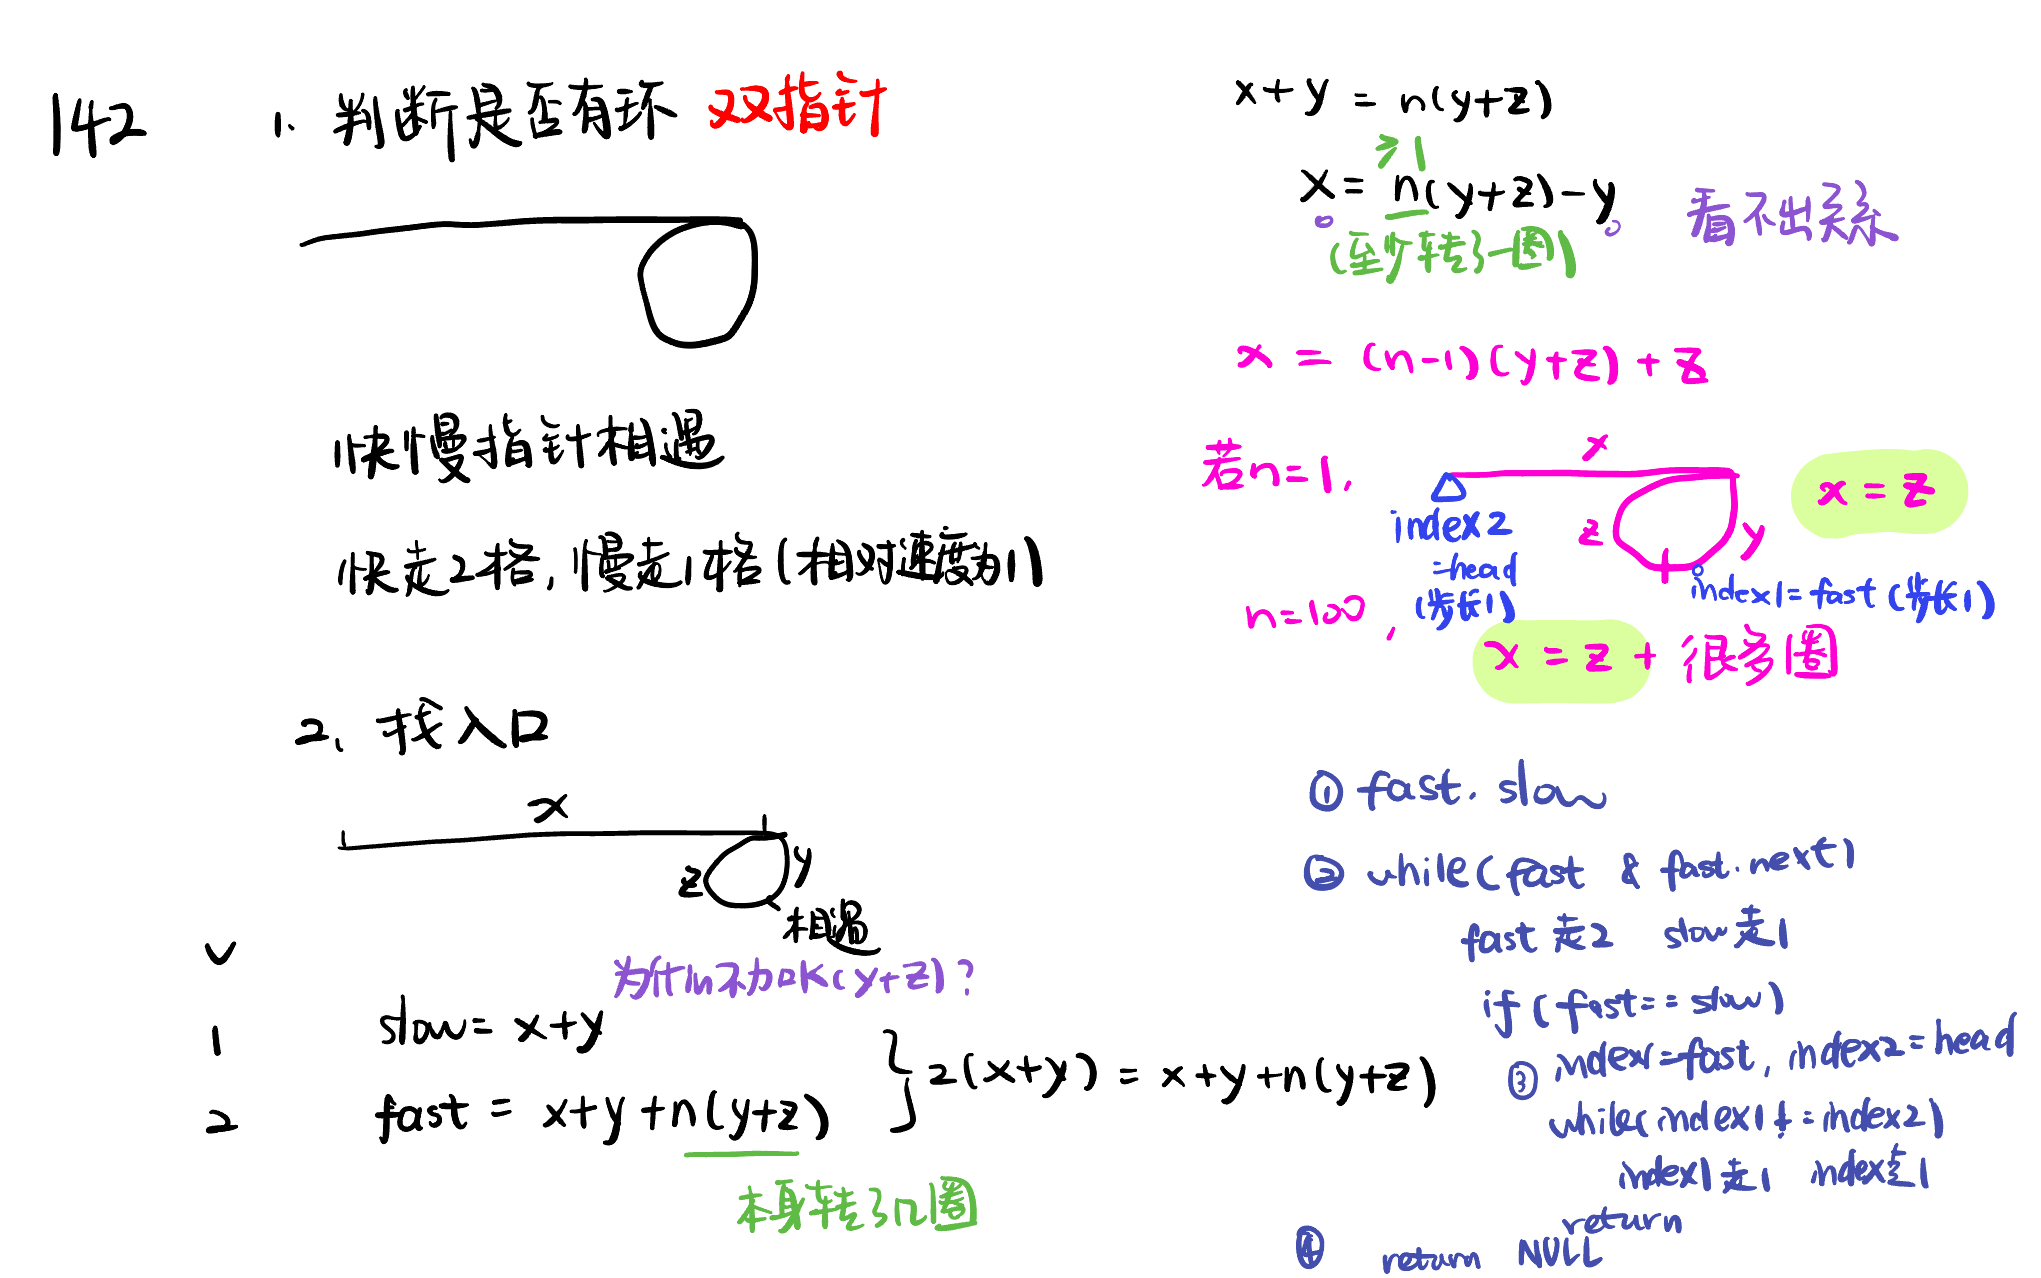 142
1. 判断是否有环 双指针
快慢指针相遇
快走2格, 慢走1格 (相对速度为1)
2. 找入口
x
z y
相遇
为什么不加k(y+z)?
v
1 slow = x+y
2 fast = x+y+n(y+z)
本身转了n圈
2(x+y) = x+y+n(y+z)
x+y = n(y+z)
≥1
x = n(y+z)-y 看不出关系
(至少转了一圈)
x = (n-1)(y+z)+z
若n=1,
x
z y
x = z
index2
=head
(步长1)
index1=fast (步长1)
n=100,
x = z + 很多圈
① fast. slow
② while(fast & fast.next)
fast 走2 slow 走1
if (fast==slow)
③ index=fast, index2=head
while(index1!=index2)
index1走1 index走1
return
④ return NULL